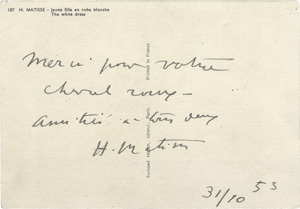 107 H. MATISSE - Jeune fille en robe blanche
The white dress
Merci pour votre
cheval rouge -
Amitiés à tous deux
H. Matisse
31/10 53
Printed in France